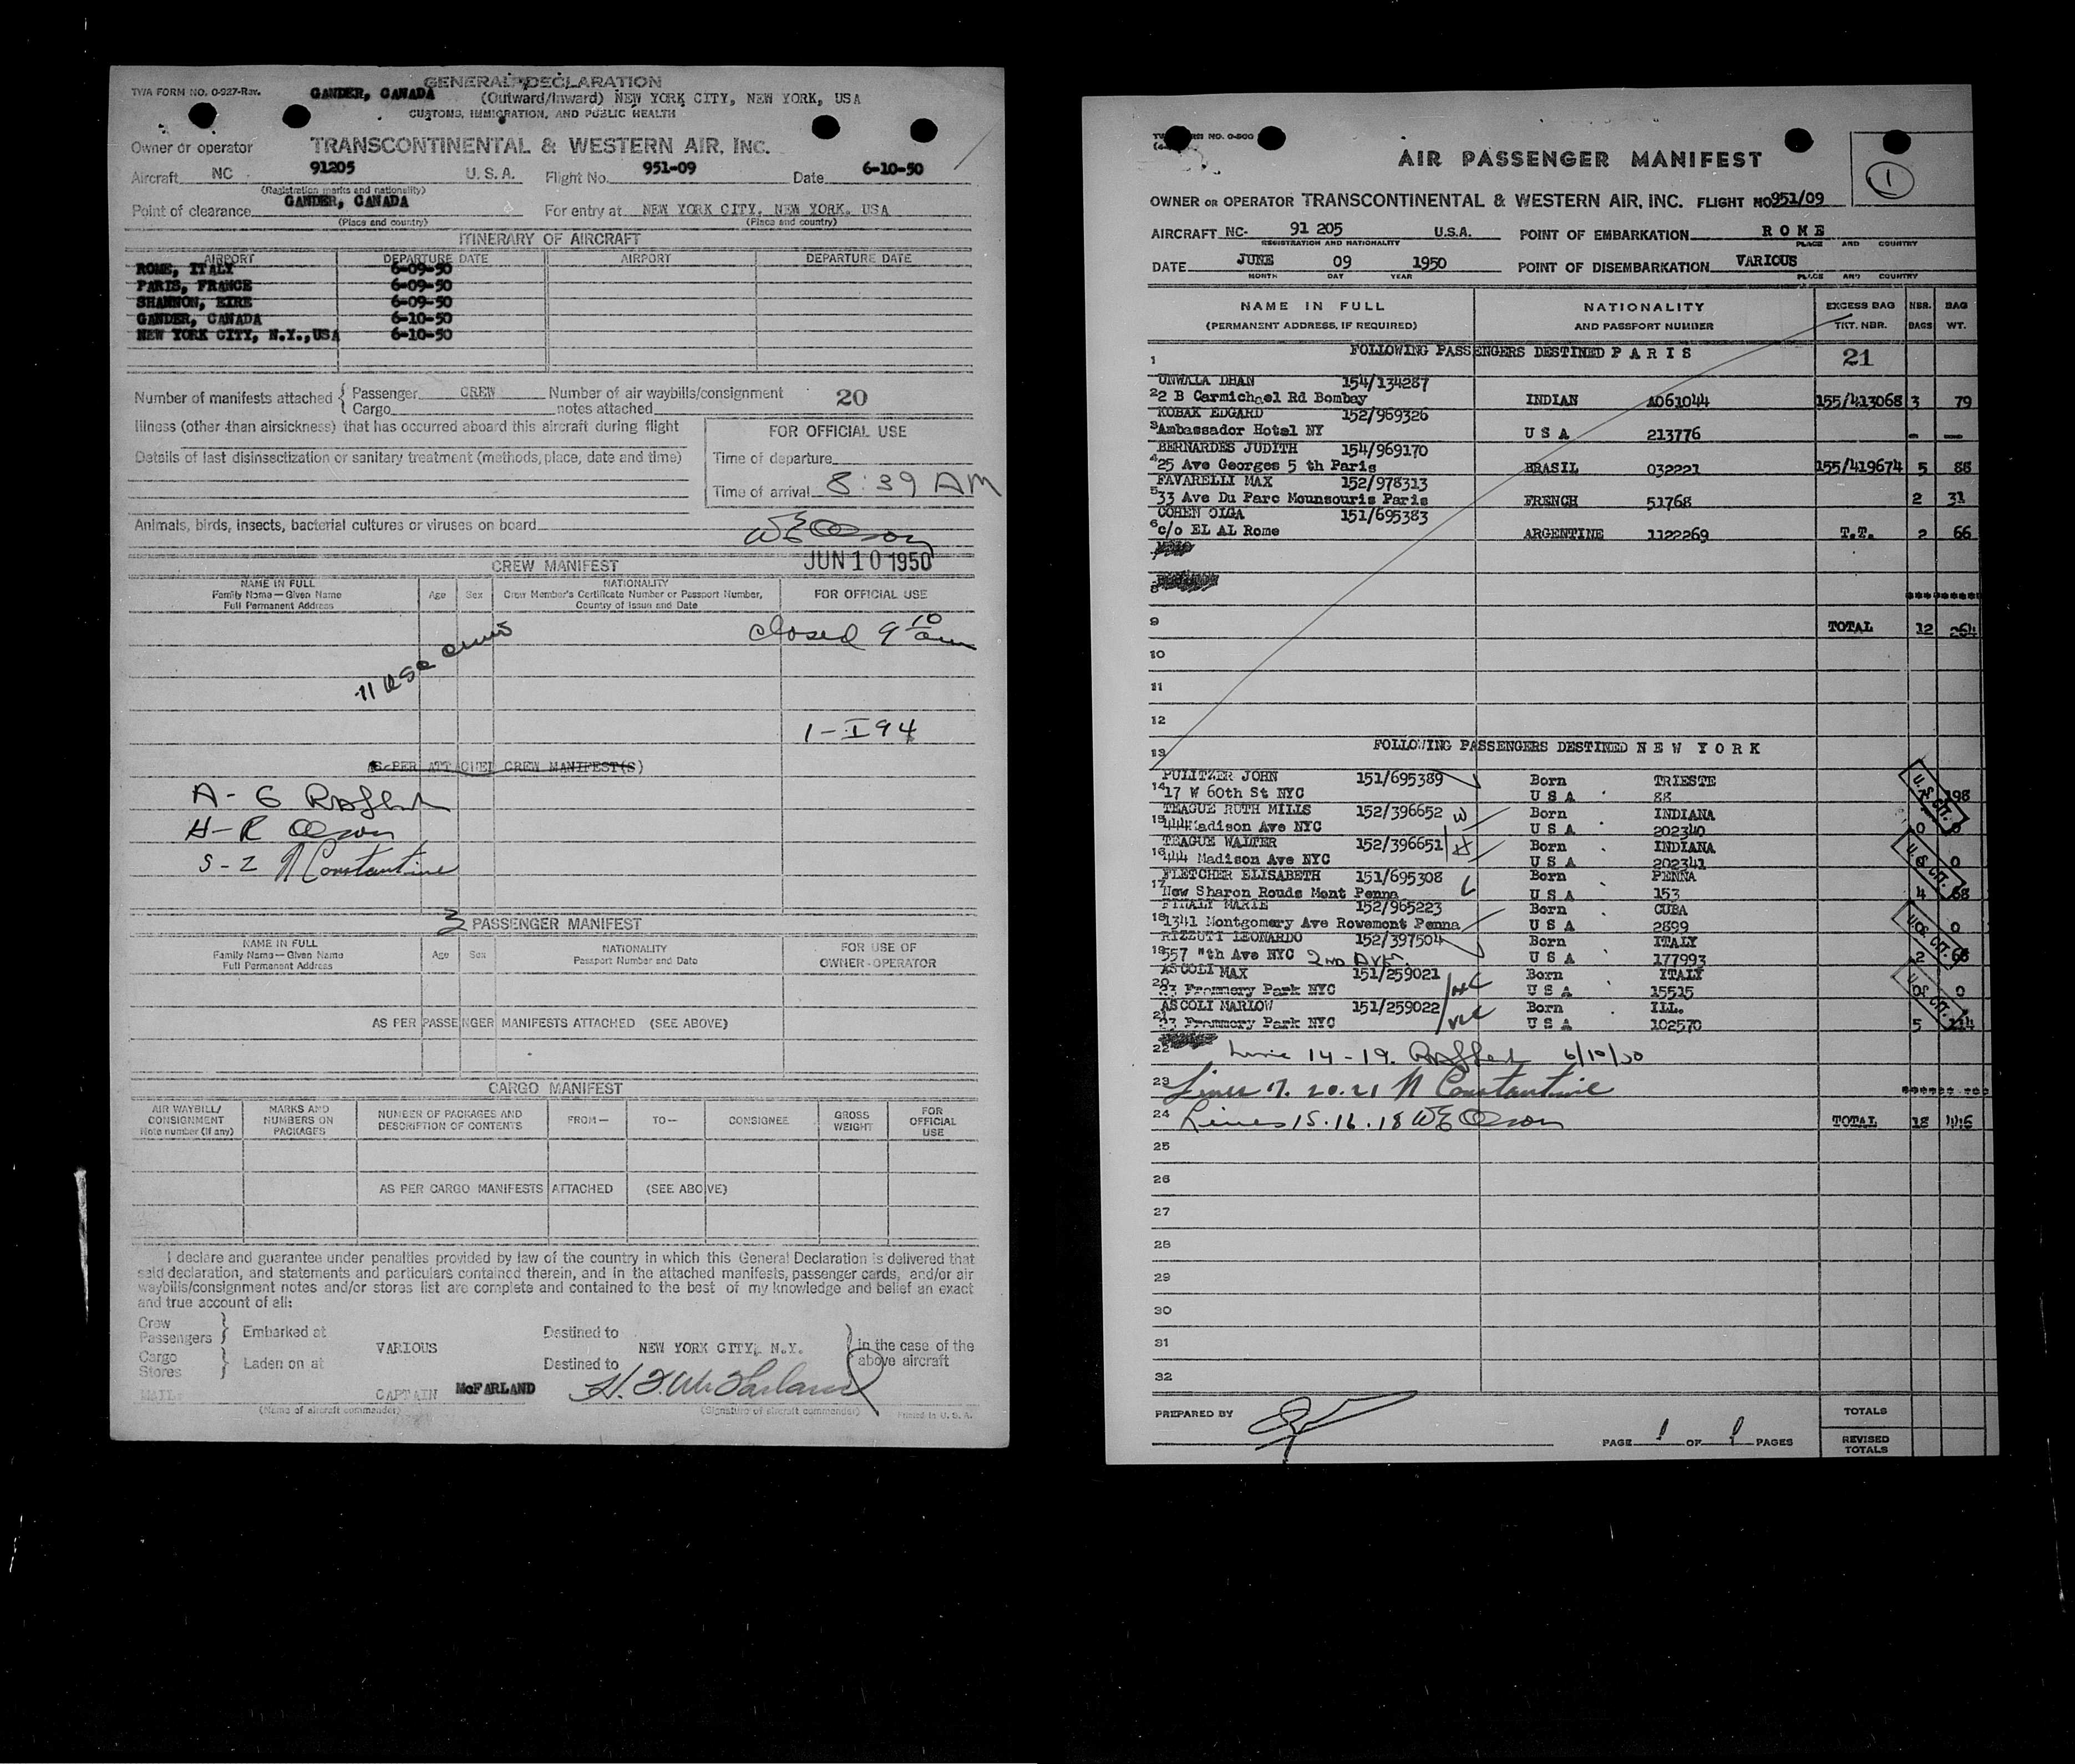 TWA FORM NO. O-927-Rev.
GENERAL DECLARATION
GANDER, CANADA
(Outward/Inward) NEW YORK CITY, NEW YORK, USA
CUSTOMS, IMMIGRATION, AND PUBLIC HEALTH
Owner or operator TRANSCONTINENTAL & WESTERN AIR, INC.
Aircraft NC 91205 U. S. A. Flight No. 951-09 Date 6-10-50
(Registration marks and nationality)
Point of clearance GANDER, CANADA For entry at NEW YORK CITY, NEW YORK, USA
(Place and country) (Place and country)
ITINERARY OF AIRCRAFT
AIRPORT DEPARTURE DATE AIRPORT DEPARTURE DATE
ROME, ITALY 6-09-50
PARIS, FRANCE 6-09-50
SHANNON, EIRE 6-09-50
GANDER, CANADA 6-10-50
NEW YORK CITY, N.Y.,USA 6-10-50
Number of manifests attached { Passenger CREW Number of air waybills/consignment 20
Cargo notes attached
Illness (other than airsickness) that has occurred aboard this aircraft during flight
FOR OFFICIAL USE
Details of last disinsectization or sanitary treatment (methods, place, date and time)
Time of departure
Time of arrival 8:39 AM
Animals, birds, insects, bacterial cultures or viruses on board
WE Olson
JUN 10 1950
CREW MANIFEST
NAME IN FULL
Family Name — Given Name
Full Permanent Address
Age Sex
NATIONALITY
Crew Member's Certificate Number or Passport Number,
Country of Issue and Date
FOR OFFICIAL USE
closed 9 10 am
11 USC Crew
1-I94
AS PER ATTACHED CREW MANIFEST(S)
A-6 Rafferty
H-R Olson
S-2 N Constantine
3 PASSENGER MANIFEST
NAME IN FULL
Family Name — Given Name
Full Permanent Address
Age Sex
NATIONALITY
Passport Number and Date
FOR USE OF
OWNER-OPERATOR
AS PER PASSENGER MANIFESTS ATTACHED (SEE ABOVE)
CARGO MANIFEST
AIR WAYBILL/ CONSIGNMENT Note number (if any)
MARKS AND NUMBERS ON PACKAGES
NUMBER OF PACKAGES AND DESCRIPTION OF CONTENTS
FROM—
TO—
CONSIGNEE
GROSS WEIGHT
FOR OFFICIAL USE
AS PER CARGO MANIFESTS ATTACHED (SEE ABOVE)
I declare and guarantee under penalties provided by law of the country in which this General Declaration is delivered that
said declaration, and statements and particulars contained therein, and in the attached manifests, passenger cards, and/or air
waybills/consignment notes and/or stores list are complete and contained to the best of my knowledge and belief an exact
and true account of all:
Crew
Passengers } Embarked at VARIOUS Destined to NEW YORK CITY, N.Y. in the case of the
Cargo
Stores } Laden on at Destined to above aircraft
MAIL CAPTAIN McFARLAND H. F. McFarland
(Name of aircraft commander) (Signature of aircraft commander) Printed in U. S. A.
AIR PASSENGER MANIFEST
1
OWNER OR OPERATOR TRANSCONTINENTAL & WESTERN AIR, INC. FLIGHT NO 951/09
AIRCRAFT NC- 91 205 U.S.A. POINT OF EMBARKATION ROME
REGISTRATION AND NATIONALITY PLACE AND COUNTRY
DATE JUNE 09 1950 POINT OF DISEMBARKATION VARIOUS
MONTH DAY YEAR PLACE AND COUNTRY
NAME IN FULL NATIONALITY EXCESS BAG NBR. BAG
(PERMANENT ADDRESS, IF REQUIRED) AND PASSPORT NUMBER TKT. NBR. BAGS WT.
1 FOLLOWING PASSENGERS DESTINED P A R I S 21
UNWALA DHAN 154/134287
2 2 B Carmichael Rd Bombay INDIAN A061044 155/413068 3 79
KOBAK EDGARD 152/969326
3 Ambassador Hotel NY U S A 213776 - -
BERNARDES JUDITH 154/969170
4 25 Ave Georges 5 th Paris BRASIL 032221 155/419674 5 88
FAVARELLI MAX 152/978313
5 33 Ave Du Parc Mounsouris Paris FRENCH 51768 2 31
COHEN OLGA 151/695383
6 c/o EL AL Rome ARGENTINE 1122269 T.T. 2 66
8
9 TOTAL 12 264
10
11
12
13 FOLLOWING PASSENGERS DESTINED N E W Y O R K
PULITZER JOHN 151/695389 Born TRIESTE
14 17 W 60th St NYC U S A 88 198
TEAGUE RUTH MILLS 152/396652 Born INDIANA
15 444Madison Ave NYC U S A 202340 0 0
TEAGUE WALTER 152/396651 Born INDIANA
16 444 Madison Ave NYC U S A 202341 0
FLETCHER ELISABETH 151/695308 Born PENNA
17 New Sharon Rouds Mont Penna U S A 153 4 68
FINALY MARIE 152/965223 Born CUBA
18 1341 Montgomery Ave Rowemont Penna U S A 2899 0
RIZZUTI LEONARDO 152/397504 Born ITALY
19 557 "th Ave NYC 2ND AVE U S A 177993 2 68
ASCOLI MAX 151/259021 Born ITALY
20 23 Frammery Park NYC U S A 15515 0
ASCOLI MARLOW 151/259022 Born ILL.
21 23 Frammory Park NYC U S A 102570 5 114
U.S. CIT.
U.S. CIT.
U.S. CIT.
U.S. CIT.
22 Line 14-19. Rafferty 6/10/50
23 Lines 17. 20. 21 N Constantine
24 Lines 15. 16. 18 WE Olson TOTAL 18 446
25
26
27
28
29
30
31
32
PREPARED BY
PAGE 1 OF 1 PAGES
TOTALS
REVISED TOTALS